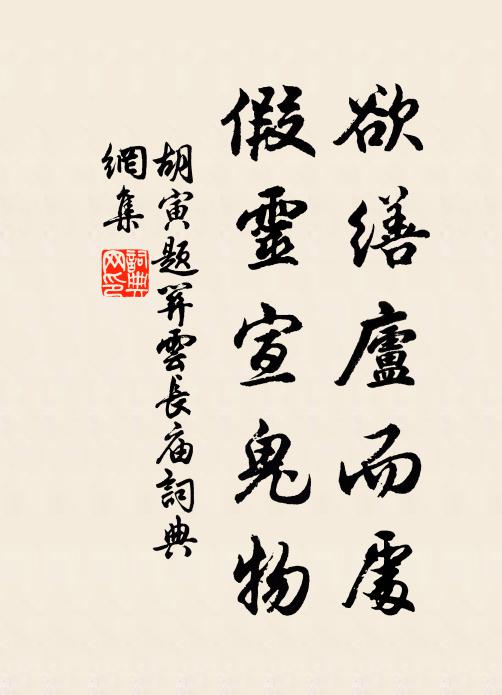 欲繕廬而處
假靈宣鬼物
胡寅題关雲長庙詞典
網集
詞典
网印